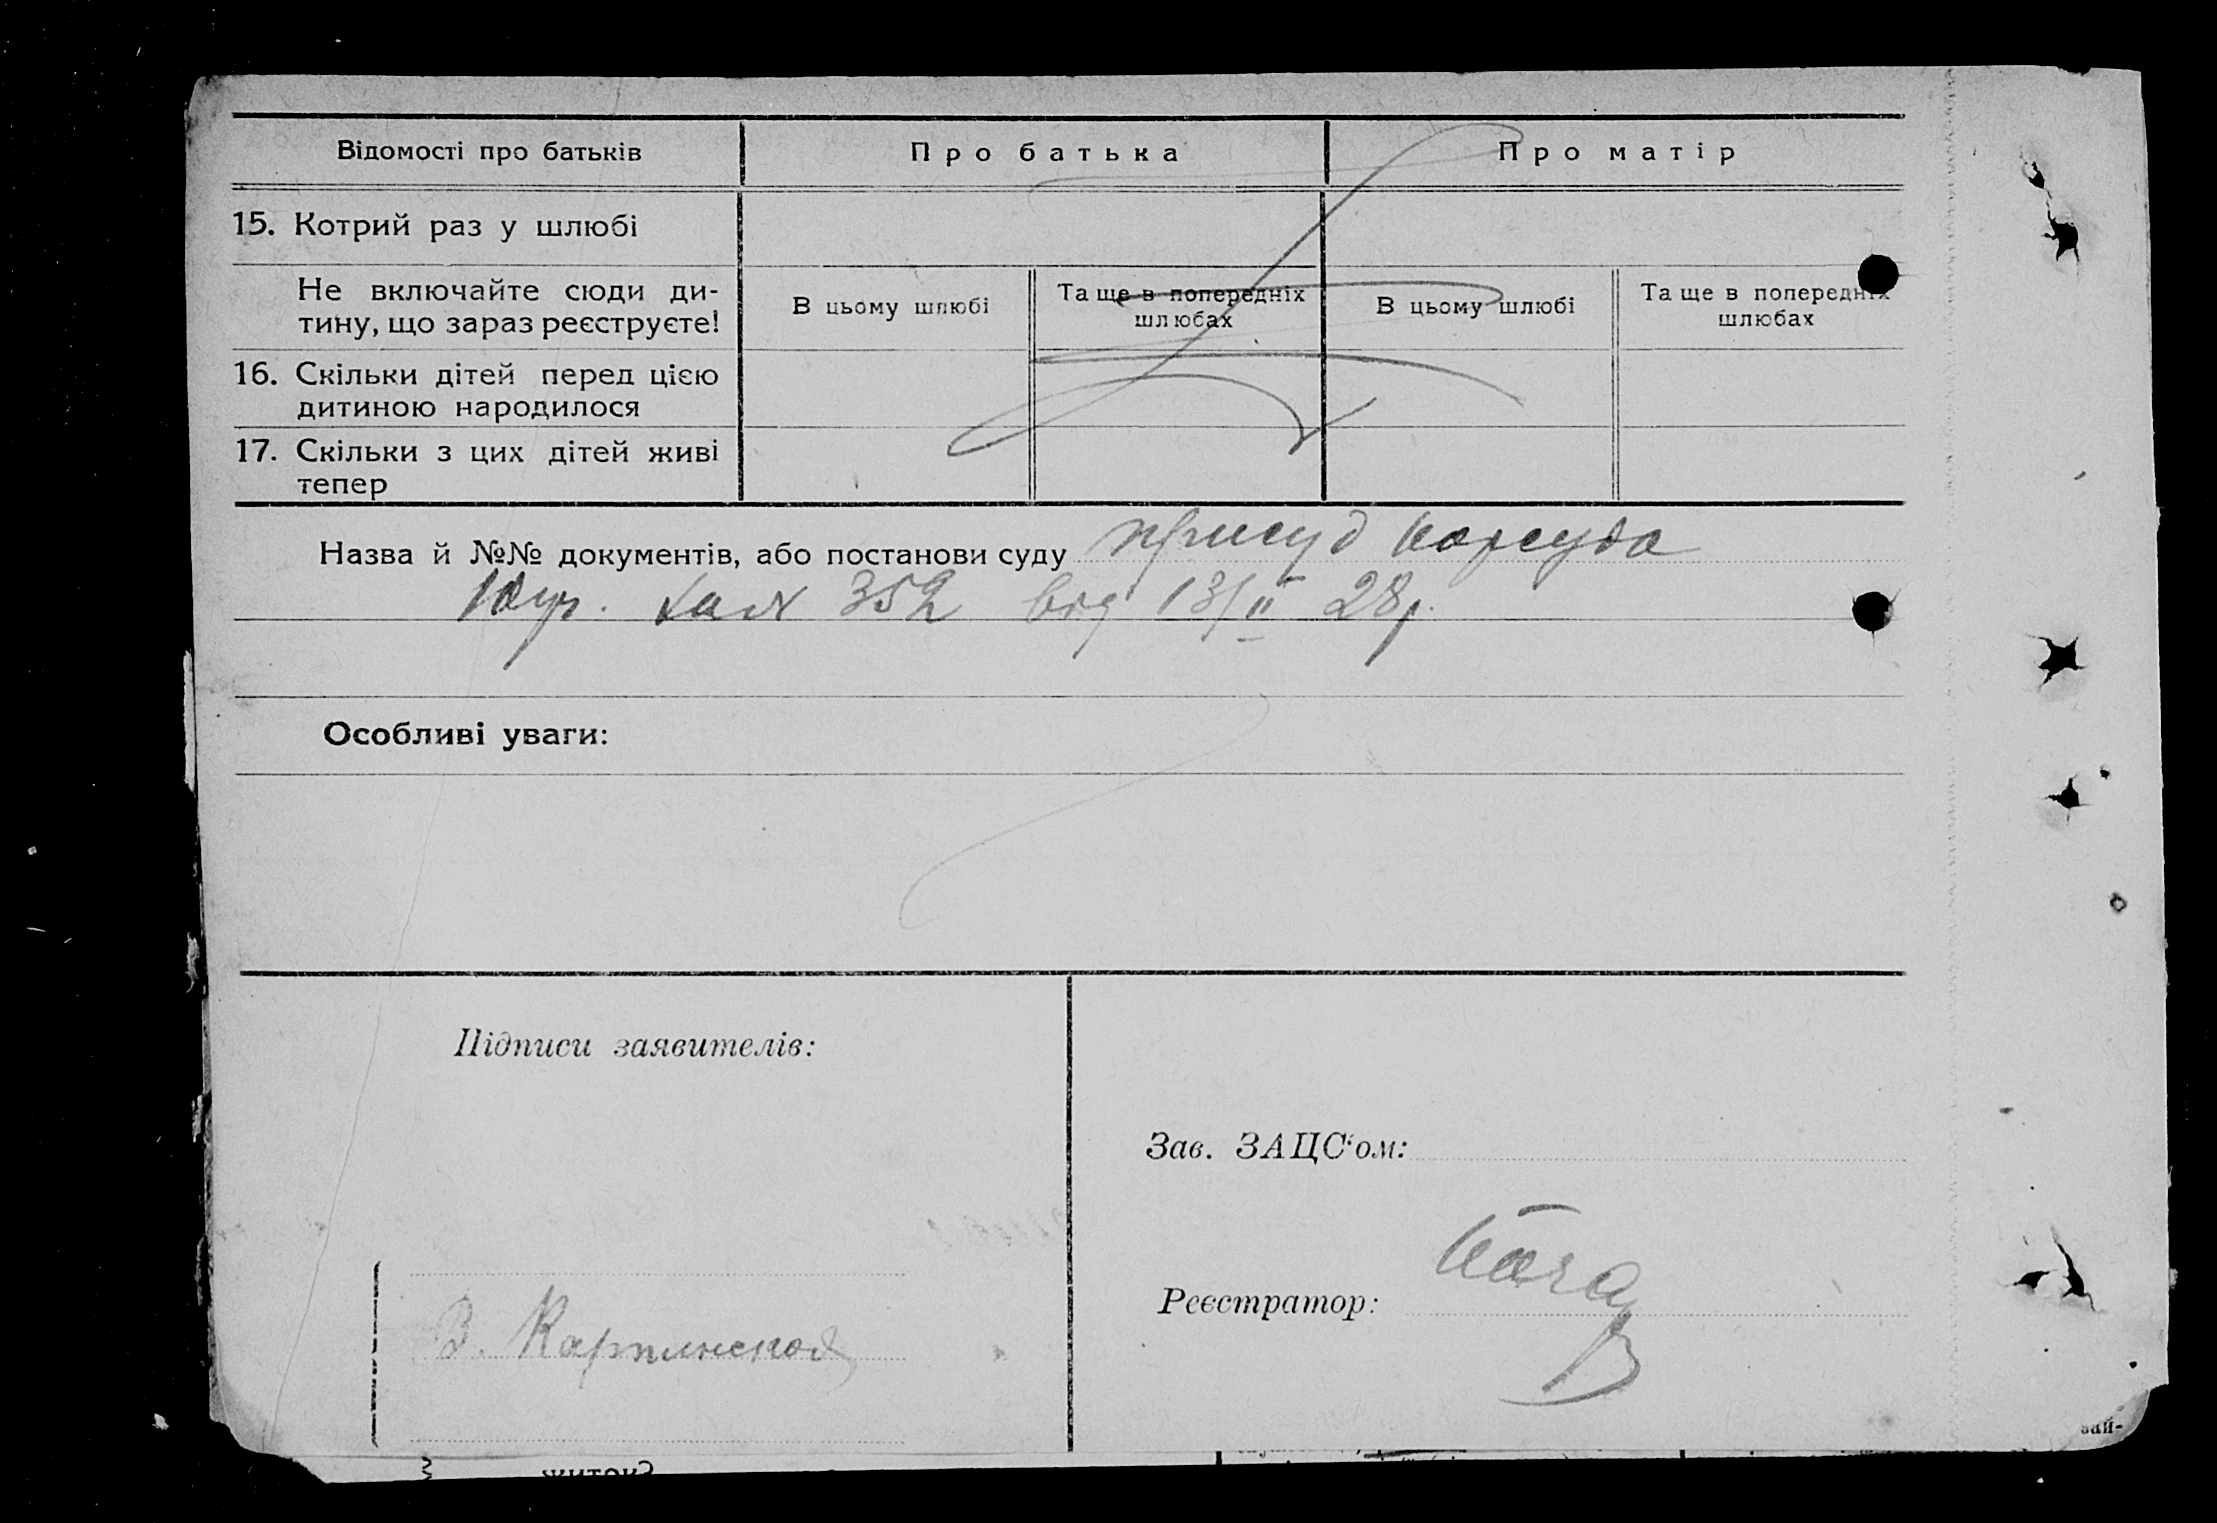 Відомості про батьків
Про батька
Про матір
15. Котрий раз у шлюбі
Не включайте сюди ди-
тину, що зараз реєструєте!
В цьому шлюбі
Та ще в попередніх
шлюбах
В цьому шлюбі
Та ще в попередніх
шлюбах
16. Скільки дітей перед цією
дитиною народилося
17. Скільки з цих дітей живі
тепер
Назва й №№ документів, або постанови суду присуд Нарсуда
352 від 13/II 28 р.
Особливі уваги:
Підписи заявителів:
Зав. ЗАЦС'ом:
Реєстратор:
З. Карпинская